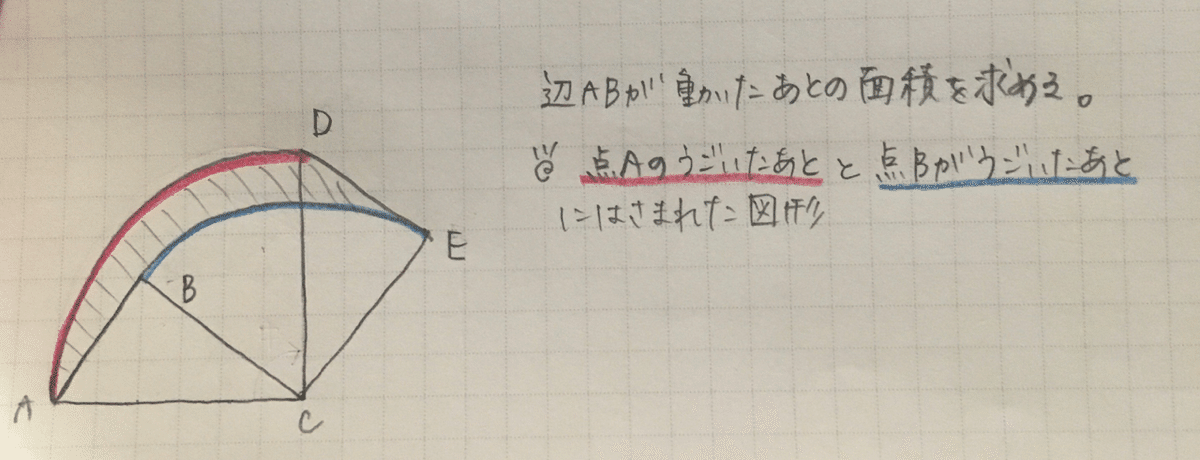 辺ABが動いたあとの面積を求める。
点Aのうごいたあとと点Bがうごいたあと
にはさまれた図形
D
B
E
A
C